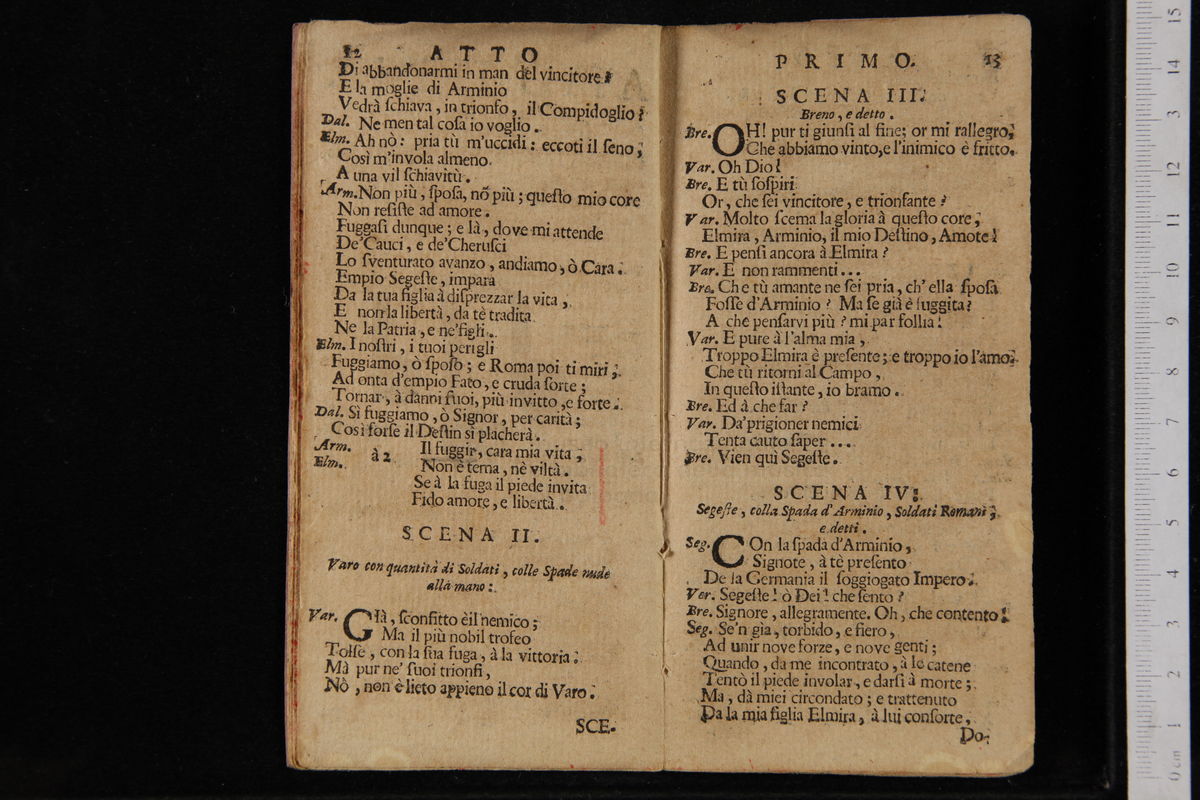 12 ATTO
Di abbandonarmi in man del vincitore?
E la moglie di Arminio
Vedrà ſchiava, in trionfo, il Compidoglio?
Dal. Ne men tal coſa io voglio.
Elm. Ah nò: pria tù m'uccidi: eccoti il ſeno,
Così m'invola almeno.
A una vil ſchiavitù.
Arm. Non più, ſpoſa, nõ più; queſto mio core
Non reſiſte ad amore.
Fuggaſi dunque; e là, dove mi attende
De'Cauci, e de'Cheruſci
Lo ſventurato avanzo, andiamo, ò Cara.
Empio Segeſte, impara
Da la tua figlia à diſprezzar la vita,
E non la libertà, da tè tradita
Ne la Patria, e ne'figli.
Elm. I noſtri, i tuoi perigli
Fuggiamo, ò ſpoſo; e Roma poi ti miri,
Ad onta d'empio Fato, e cruda ſorte;
Tornar, à danni ſuoi, più invitto, e forte.
Dal. Sì fuggiamo, ò Signor, per carità;
Cosi forſe il Deſtin si placherà.
Arm. Elm. à 2 Il fuggir, cara mia vita,
Non è tema, nè viltà.
Se à la fuga il piede invita
Fido amore, e libertà.
SCENA II.
Varo con quantità di Soldati, colle Spade nude
alla mano.
Var. GIà, ſconfitto è il nemico;
Ma il più nobil trofeo
Tolſe, con la ſua fuga, à la vittoria.
Mà pur ne' ſuoi trionfi,
Nò, non è lieto appieno il cor di Varo.
SCE-
PRIMO. 13
SCENA III.
Breno, e detto.
Bre. OH! pur ti giunſi al fine; or mi rallegro,
Che abbiamo vinto, e l'inimico è fritto.
Var. Oh Dio!
Bre. E tù ſoſpiri
Or, che ſei vincitore, e trionfante?
Var. Molto ſcema la gloria à queſto core,
Elmira, Arminio, il mio Deſtino, Amote!
Bre. E penſi ancora à Elmira?
Var. E non rammenti...
Bre. Che tù amante ne ſei pria, ch'ella ſpoſa
Foſſe d'Arminio? Ma ſe già è fuggita?
A che penſarvi più? mi par follia!
Var. E pure à l'alma mia,
Troppo Elmira è preſente; e troppo io l'amo.
Che tù ritorni al Campo,
In queſto iſtante, io bramo.
Bre. Ed à che far?
Var. Da'prigioner nemici
Tenta cauto ſaper...
Bre. Vien quì Segeſte.
SCENA IV.
Segeſte, colla Spada d'Arminio, Soldati Romani,
e detti.
Seg. COn la ſpada d'Arminio,
Signote, à tè preſento
De la Germania il ſoggiogato Impero.
Ver. Segeſte! ò Dei! che ſento?
Bre. Signore, allegramente. Oh, che contento!
Seg. Se'n gia, torbido, e fiero,
Ad unir nove forze, e nove genti;
Quando, da me incontrato, à le catene
Tentò il piede involar, e darſi à morte;
Ma, dà miei circondato; e trattenuto
Da la mia figlia Elmira, à lui conſorte,
Do-
0 cm 1 2 3 4 5 6 7 8 9 10 11 12 13 14 15